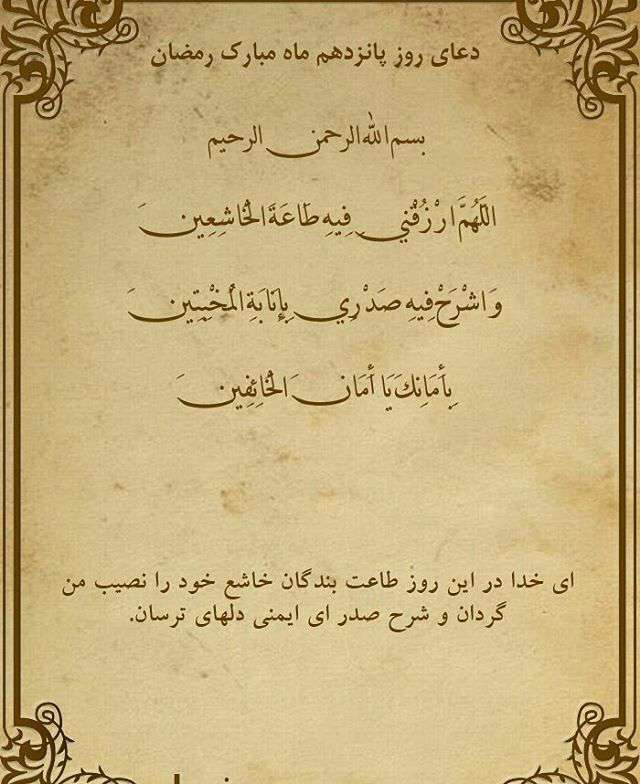 دعای روز پانزدهم ماه مبارک رمضان
بسم الله الرحمن الرحیم
اللَّهُمَّ ارْزُقْنِي فِيهِ طَاعَةَ الْخَاشِعِينَ
وَ اشْرَحْ فِيهِ صَدْرِي بِإِنَابَةِ الْمُخْبِتِينَ
بِأَمَانِكَ يَا أَمَانَ الْخَائِفِينَ
ای خدا در این روز طاعت بندگان خاشع خود را نصیب من
گردان و شرح صدر ای ایمنی دلهای ترسان.